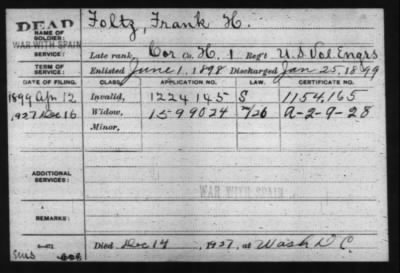 DEAD
NAME OF SOLDIER: Foltz, Frank H.
WAR WITH SPAIN
SERVICE: Late rank, Cor Co. H, 1 Reg't U.S. Vol. Engrs
TERM OF SERVICE: Enlisted June 1, 1898 Discharged Jan 25, 1899
DATE OF FILING. CLASS. APPLICATION NO. LAW. CERTIFICATE NO.
1899 Apr 12 Invalid, 1224145 S 1154,165
1927 Dec 16 Widow, 1599024 7/26 A-2-9-28
Minor,
ADDITIONAL SERVICES:
WAR WITH SPAIN
REMARKS:
Died Dec 14, 1927, at Wash D C.